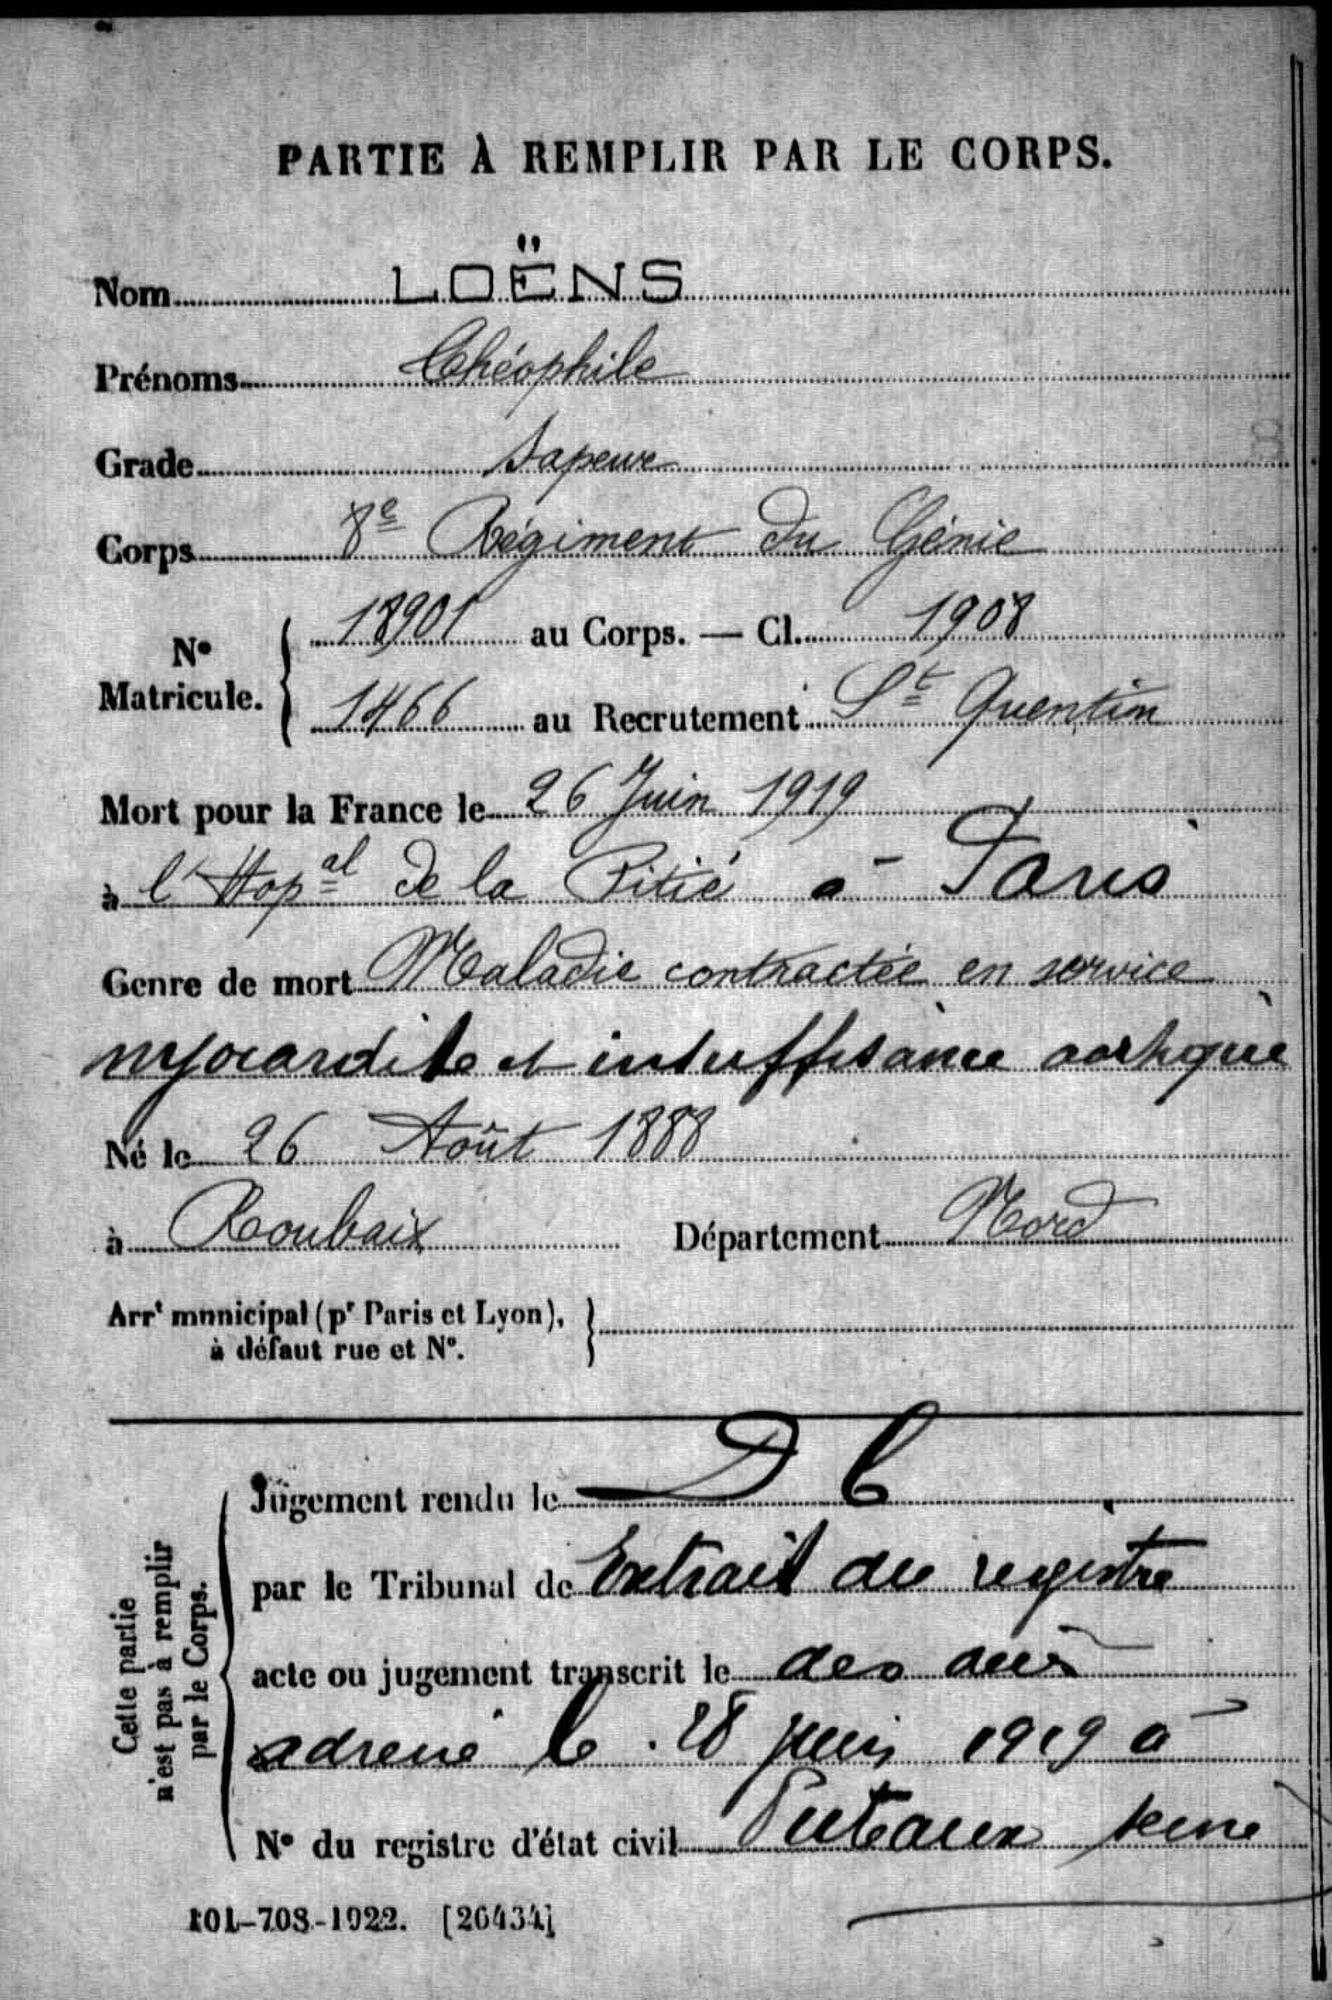 PARTIE À REMPLIR PAR LE CORPS.
Nom LOËNS
Prénoms Théophile
Grade Sapeur
Corps 8e Régiment du Génie
N° Matricule. 18901 au Corps. — Cl. 1908
1466 au Recrutement St Quentin
Mort pour la France le 26 Juin 1919
à l'Hopal de la Pitié à Paris
Genre de mort Maladie contractée en service
myocardite et insuffisance aortique
Né le 26 Août 1888
à Roubaix Département Nord
Arrt municipal (pr Paris et Lyon),
à défaut rue et N°.
Cette partie
n'est pas à remplir
par le Corps.
Jugement rendu le D C
par le Tribunal de Extrait du registre
acte ou jugement transcrit le des
le 28 juin 1919 à
N° du registre d'état civil Puteaux Seine
101-708-1922. [26434]